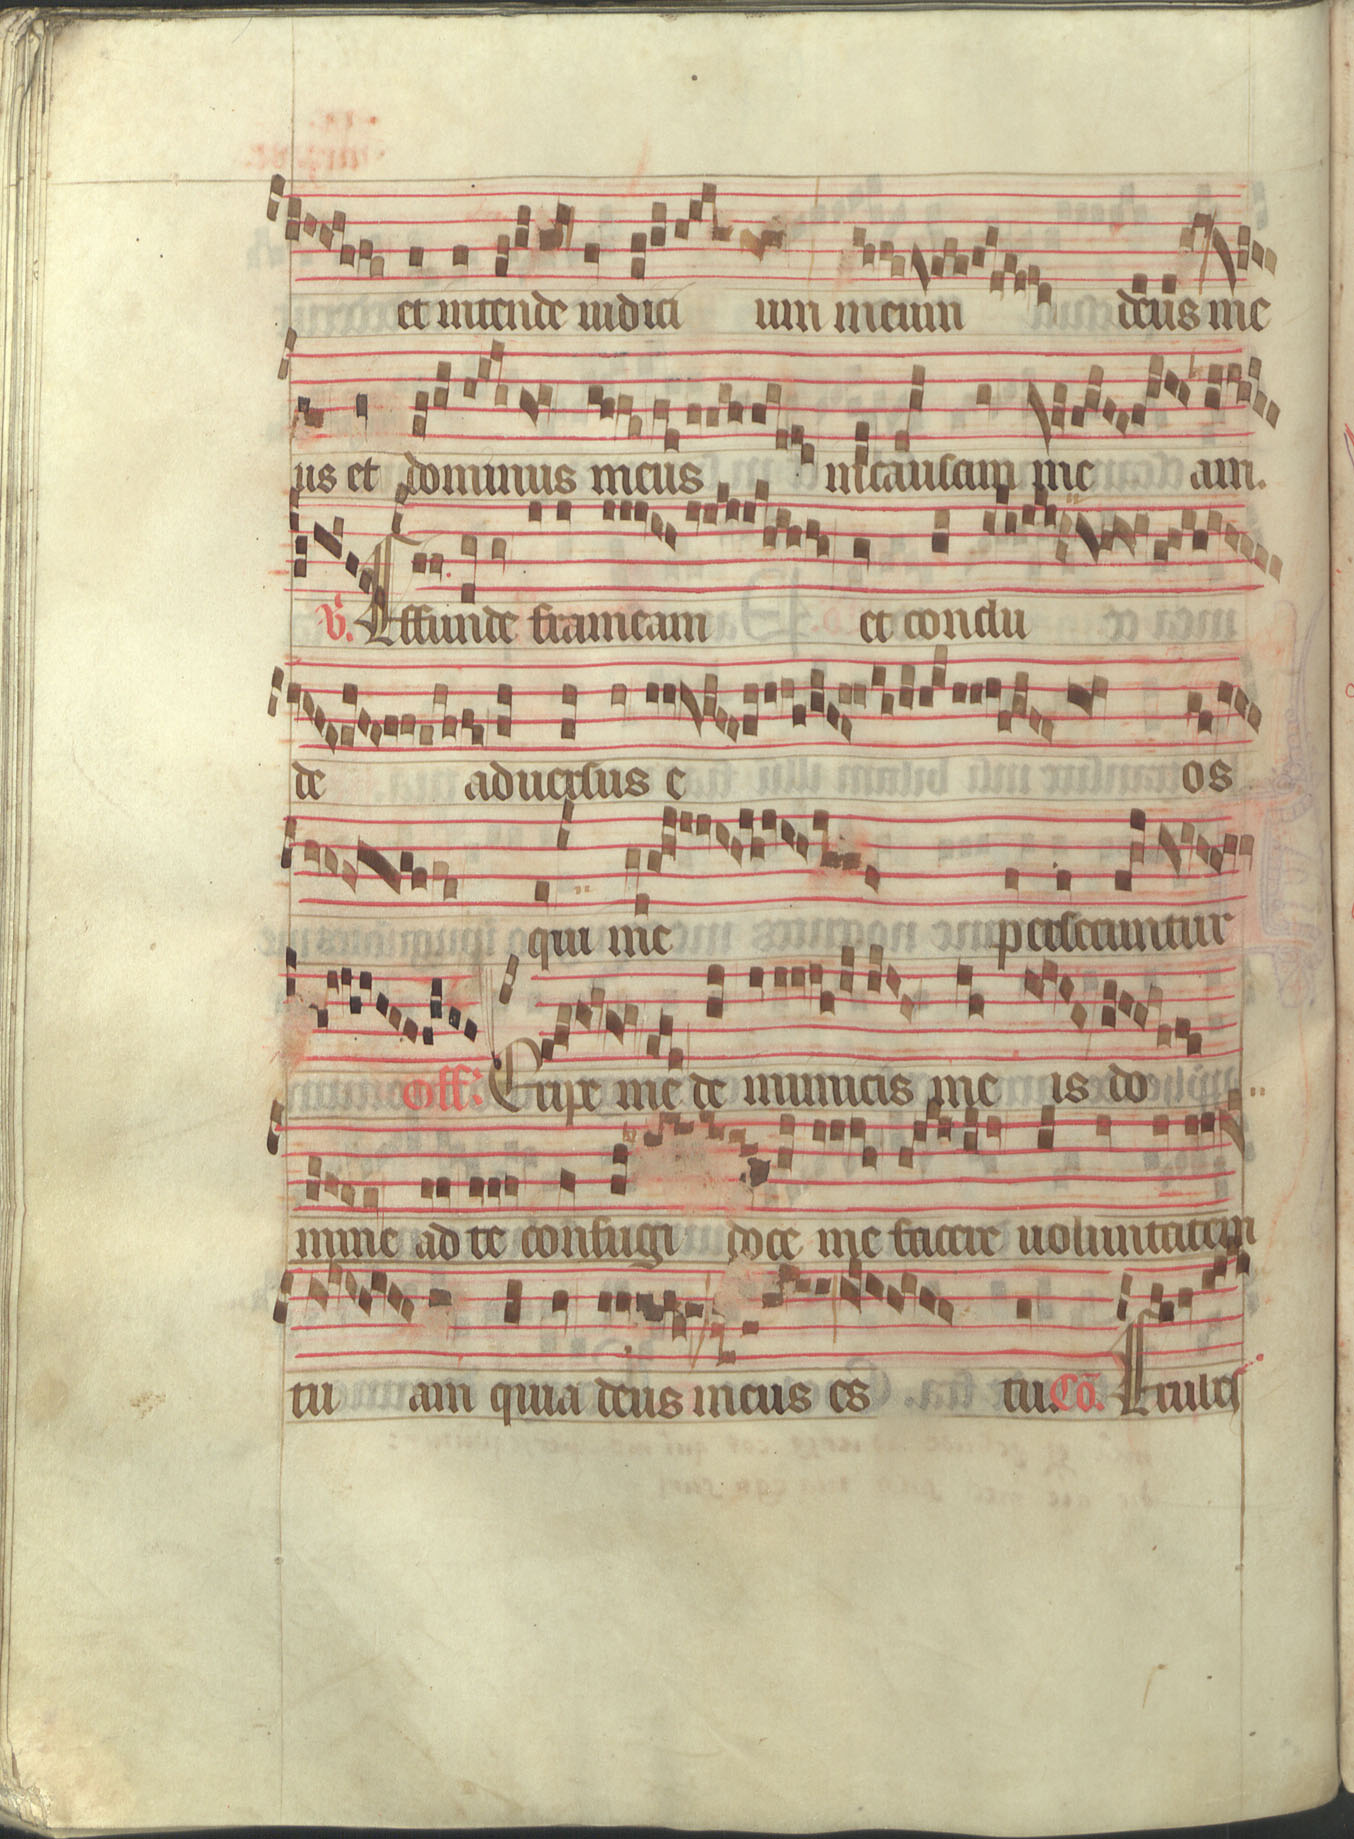 et intende iudici um meum deus me
us et dominus meus in causam me am.
V. Effunde frameam et conclu
de aduersus e os
qui me persecuntur
Off. Eripe me de inimicis me is do
mine ad te confugi doce me facere uoluntatem
tu am quia deus meus es tu. Cō. Erubes